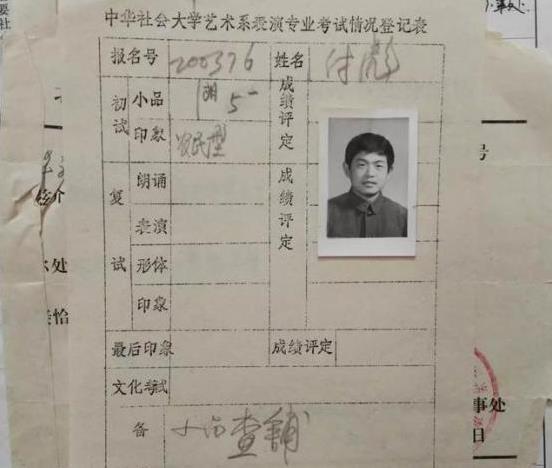 中华社会大学艺术系表演专业考试情况登记表
报名号 200376 姓名 付彪
初试 小品 5- 成绩评定
印象 农民型
复试 朗诵 成绩评定
表演
形体
印象
最后印象 成绩评定
文化考试
备 查铺
号
介
处
事处
日